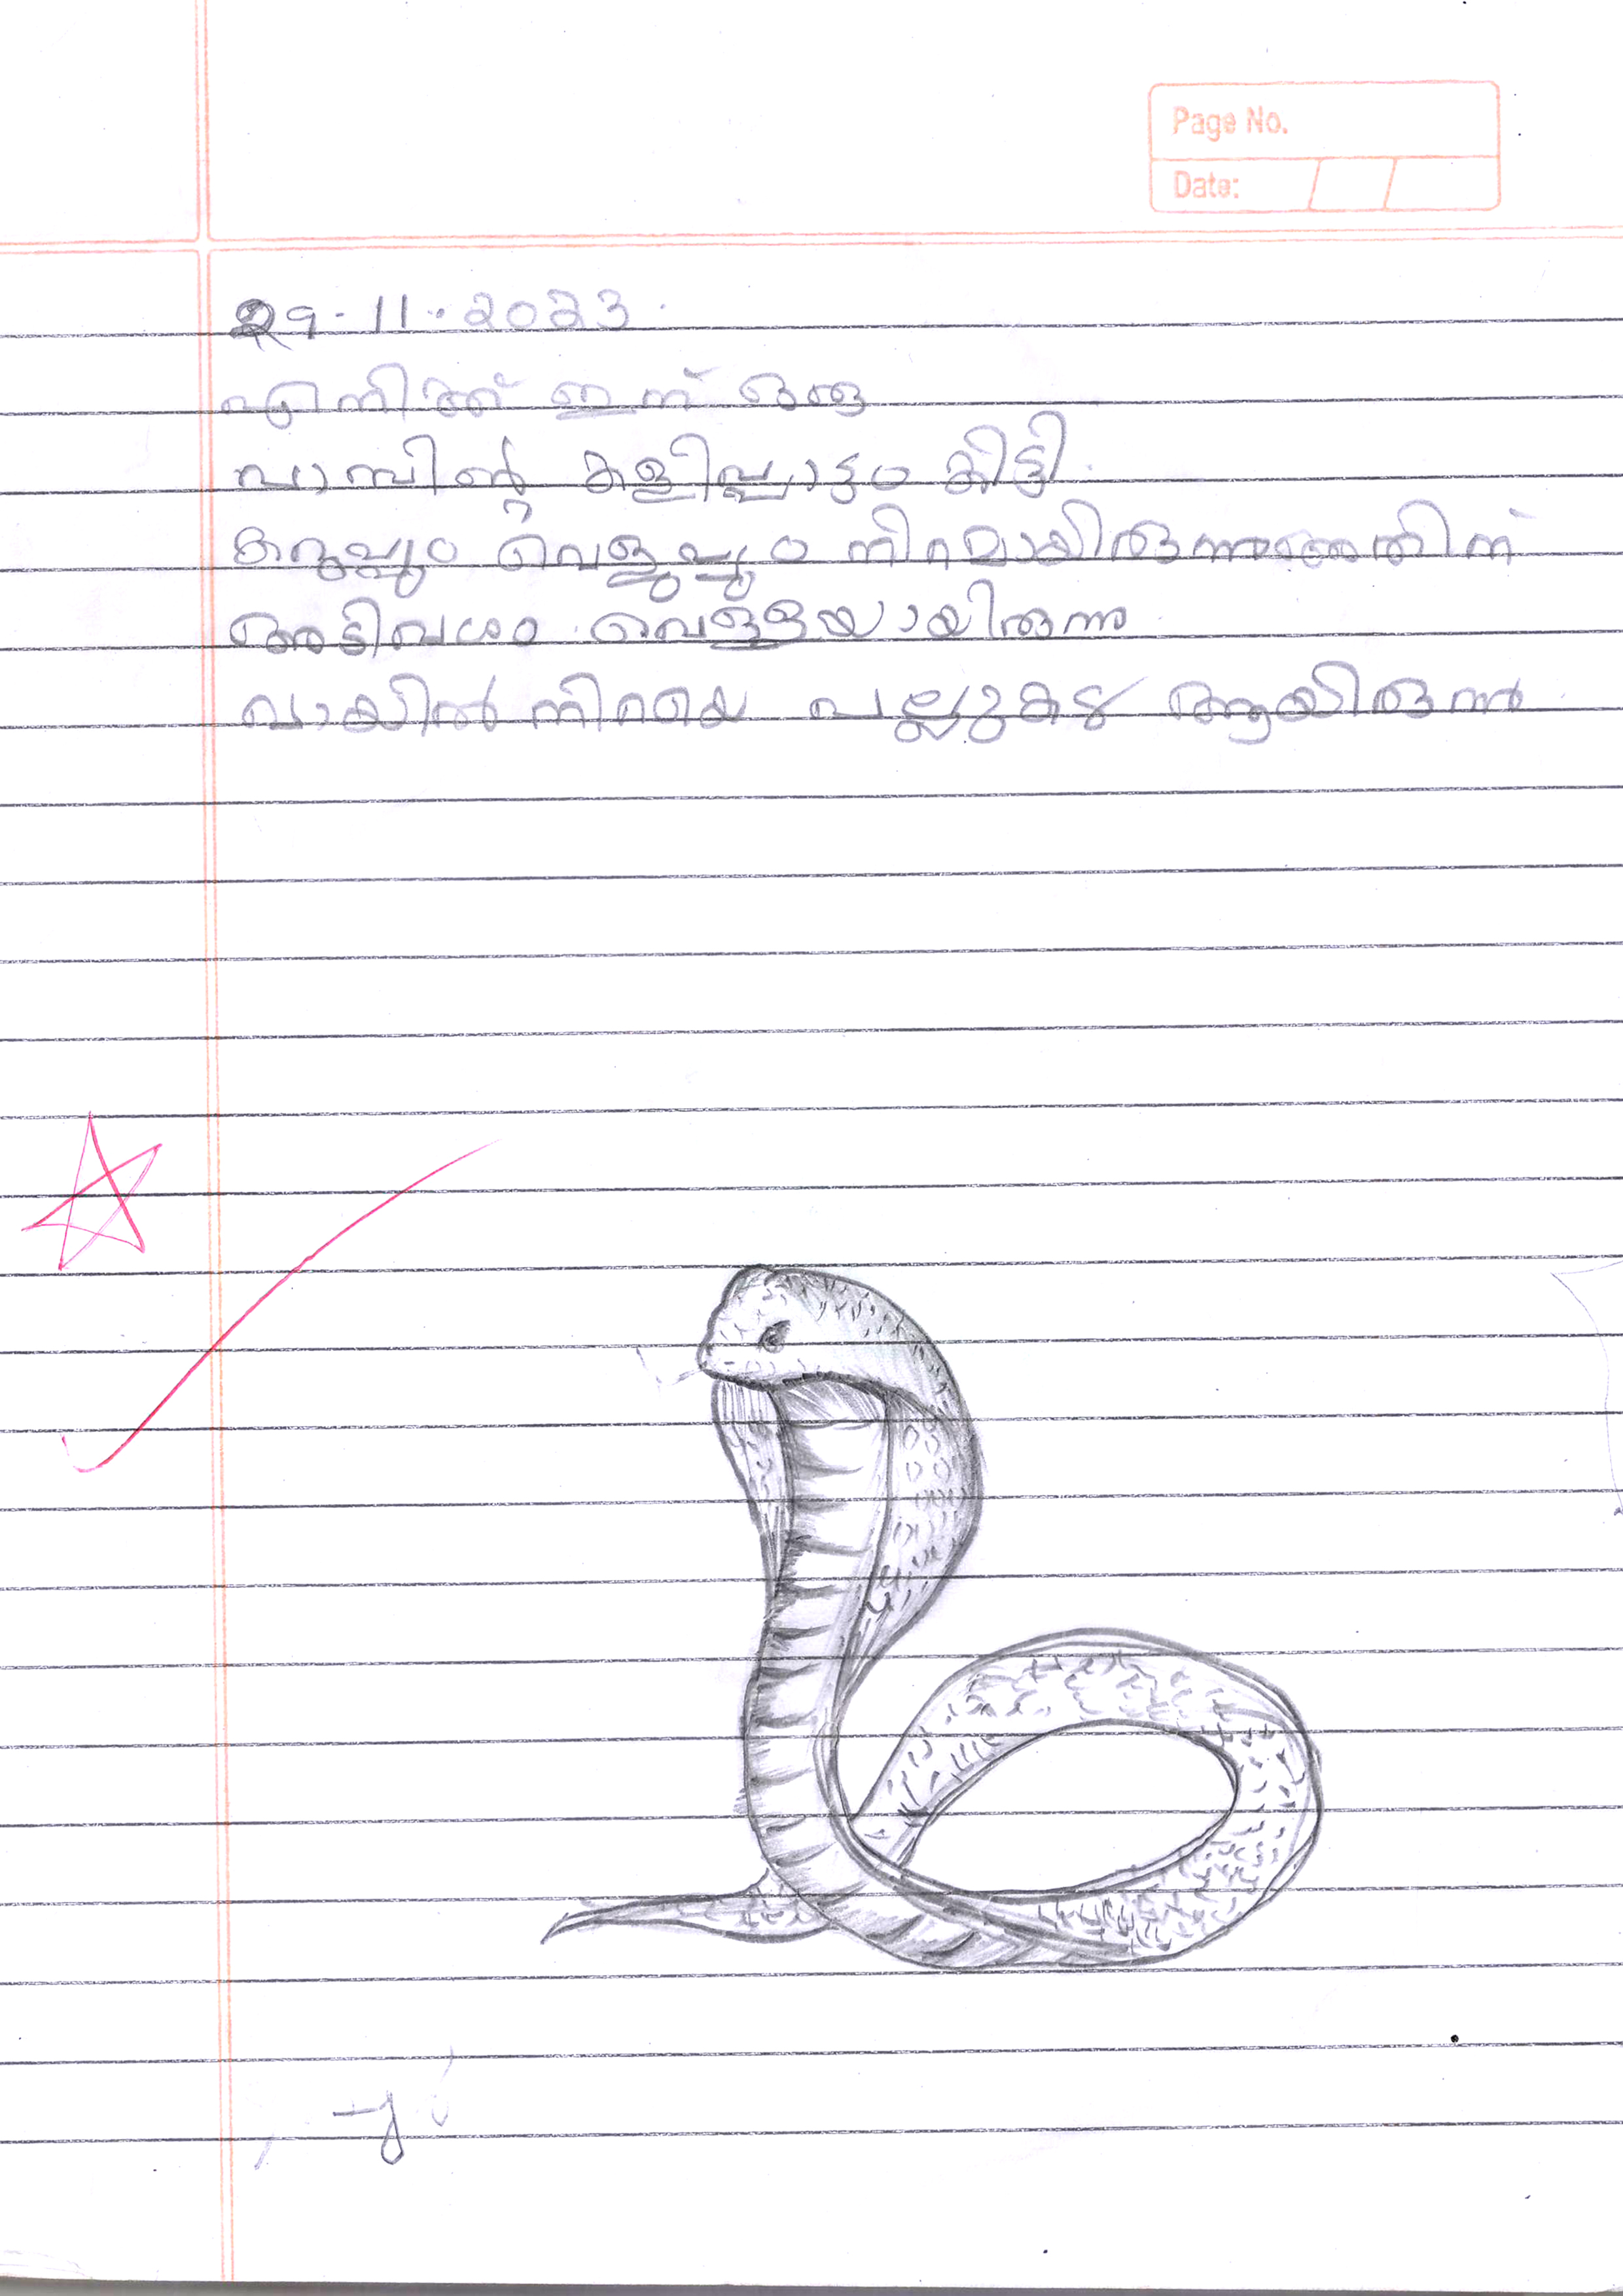 Page No.
Date:
29-11-2023.
എനിക്ക് ഇന് ഒരു
പാമ്പിൻ്റെ കളിപ്പാട്ടം കിട്ടി.
കറുപ്പും വെളുപ്പും നിറമായിരുന്നു അതിന്
അടിവശം വെള്ളയായിരുന്നു
വായിൽ നിറയെ പല്ലുകൾ ആയിരുന്ന